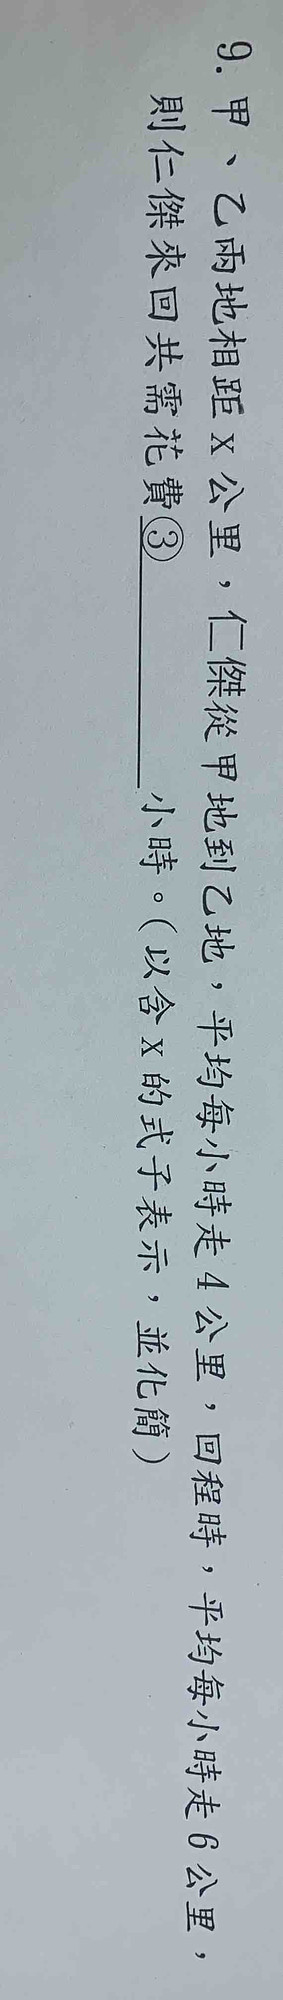 9. 甲、乙兩地相距 x 公里，仁傑從甲地到乙地，平均每小時走 4 公里，回程時，平均每小時走 6 公里，
則仁傑來回共需花費③＿＿＿＿＿＿小時。（以含 x 的式子表示，並化簡）